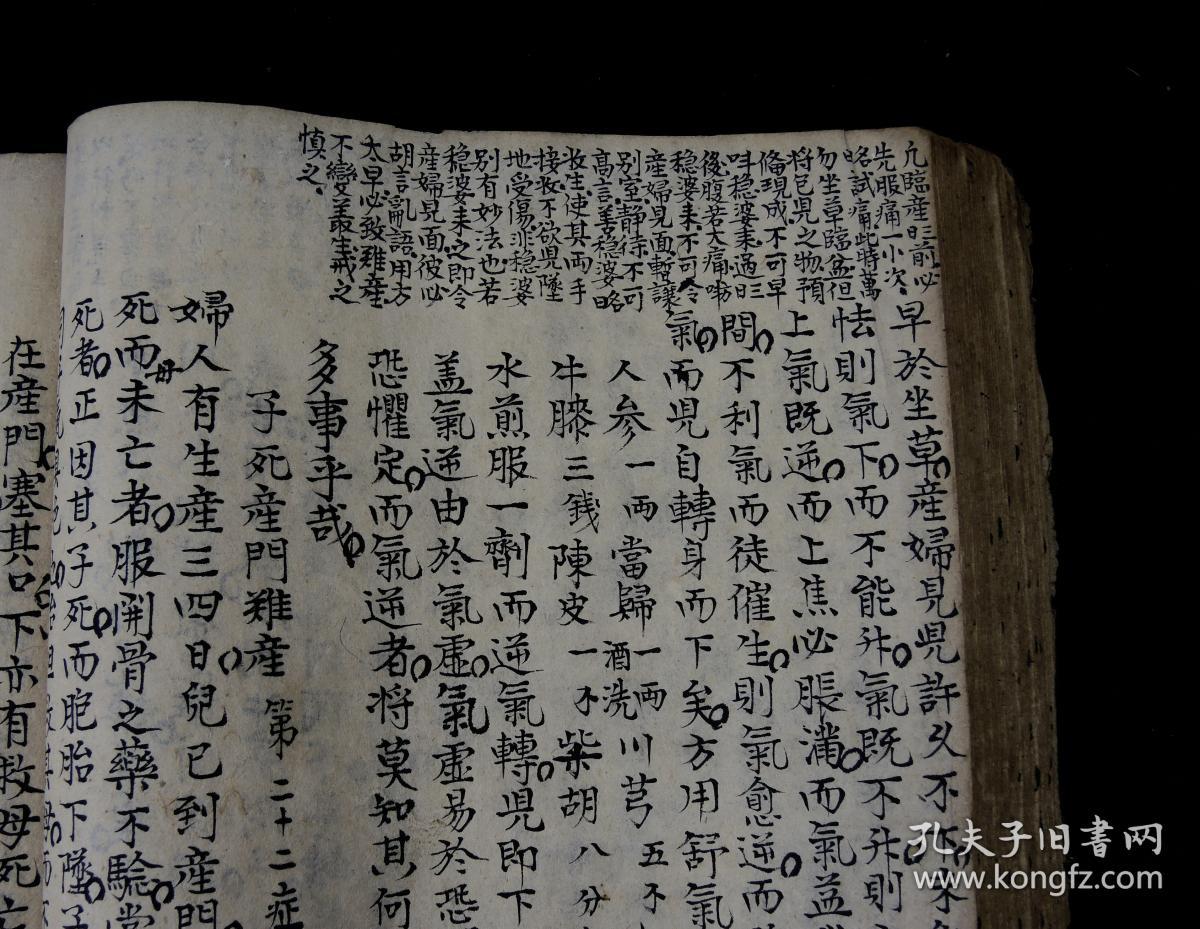 凢臨産㫖前必
先服痛一小次
略試痛此時萬
勿坐草臨盆但
將包児之物預
俻現成不可早
呌穩婆来過三
後腹若大痛
穩婆来不可令
産婦見面暫讓
别室静待不可
高言善穩婆略
收生使其兩手
接收不欲児墜
地受傷非穩婆
别有妙法也若
穩婆来之即令
産婦見面彼必
胡言亂語用方
太早必致難産
不變叢生戒之
慎之
早於坐草産婦見児許久不下
怯則氣下而不能升氣既不升則
上氣既逆而上焦必脹滿而氣益
間不利氣而徒催生則氣愈逆而
氣而児自轉身而下矣方用舒氣
人參一兩當歸一兩酒洗川芎五
牛膝三錢陳皮一柴胡八分
水煎服一劑而逆氣轉児即下
盖氣逆由於氣虛氣虛易於恐
恐懼定而氣逆者将莫知其何
多事乎哉
子死産門難産 第二十二症
婦人有生産三四日兒已到産門
死而母未亡者服開骨之藥不驗當
死者正因其子死而胞胎下墜子
在産門塞其口下亦有救母死
孔夫子旧书网
www.kongfz.com